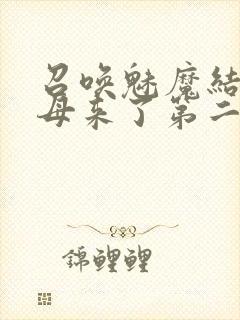 召喚魅魔結
母来了第二
錦鯉鯉